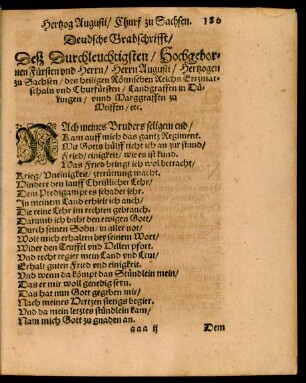 Hertzog Augusti/ Churf zu Sachsen.
186
Deudsche Grabschrifft/
Deß Durchleuchtigsten/ Hochgebor-
nen Fürsten vnd Herrn/ Herrn Augusti/ Hertzogen
zu Sachsen/ des heiligen Römischen Reichs Ertzmar-
schaln vnd Churfürsten/ Landgraffen in Dü-
ringen/ vnnd Marggraffen zu
Meissen/ etc.
NAch meines Bruders seligen end/
Kam auff mich das gantz Regiment.
Mit Gotts hülff richt ich an zur stund/
Fried/ einigkeit/ wie es ist kund.
Was Fried bringt ich wol betracht/
Krieg/ Vneinigkeit/ zerrüttung macht.
Hindert den lauff Christlicher Lehr/
Dem Predigampt es schadet sehr.
In meinem Land erhielt ich auch/
Die reine Lehr im rechten gebrauch.
Darumb ich baht den ewigen Gott/
Durch seinen Sohn/ in aller not/
Wolt mich erhalten bey seinem Wort/
Wider den Teuffel vnd Hellen pfort.
Vnd recht regier mein Land vnd Leut/
Erhalt guten Fried vnd einigkeit.
Vnd wenn da kömpt das Stündlein mein/
Das er mir woll genedig sein.
Das hat nun Gott gegeben mir/
Nach meines Hertzen stetigs begier.
Vnd da mein letztes stündlein kam/
Nam mich Gott zu gnaden an.
aaa ij
Dem